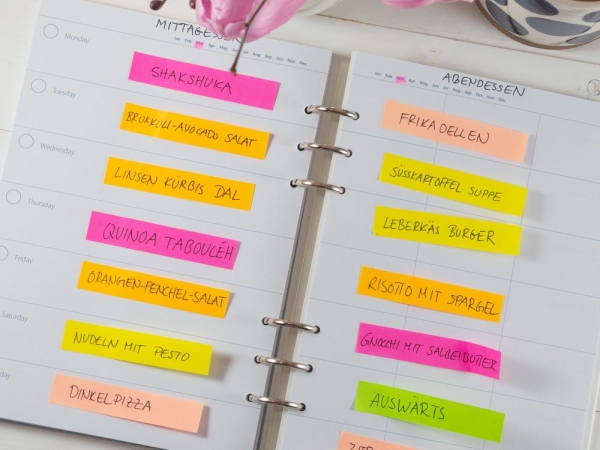 MITTAGESSEN
Jan Feb Mar Apr May Jun Jul Aug Sep Oct Nov Dec
Monday
SHAKSHUKA
Tuesday
BROKKOLI-AVOCADO SALAT
Wednesday
LINSEN KÜRBIS DAL
Thursday
QUINOA TABOULÉH
Friday
ORANGEN-FENCHEL-SALAT
Saturday
NUDELN MIT PESTO
day
DINKELPIZZA
ABENDESSEN
Jan Feb Mar Apr May Jun Jul Aug Sep Oct Nov Dec
FRIKADELLEN
SÜSSKARTOFFEL SUPPE
LEBERKÄS BURGER
RISOTTO MIT SPARGEL
GNOCCHI MIT SALBEIBUTTER
AUSWÄRTS